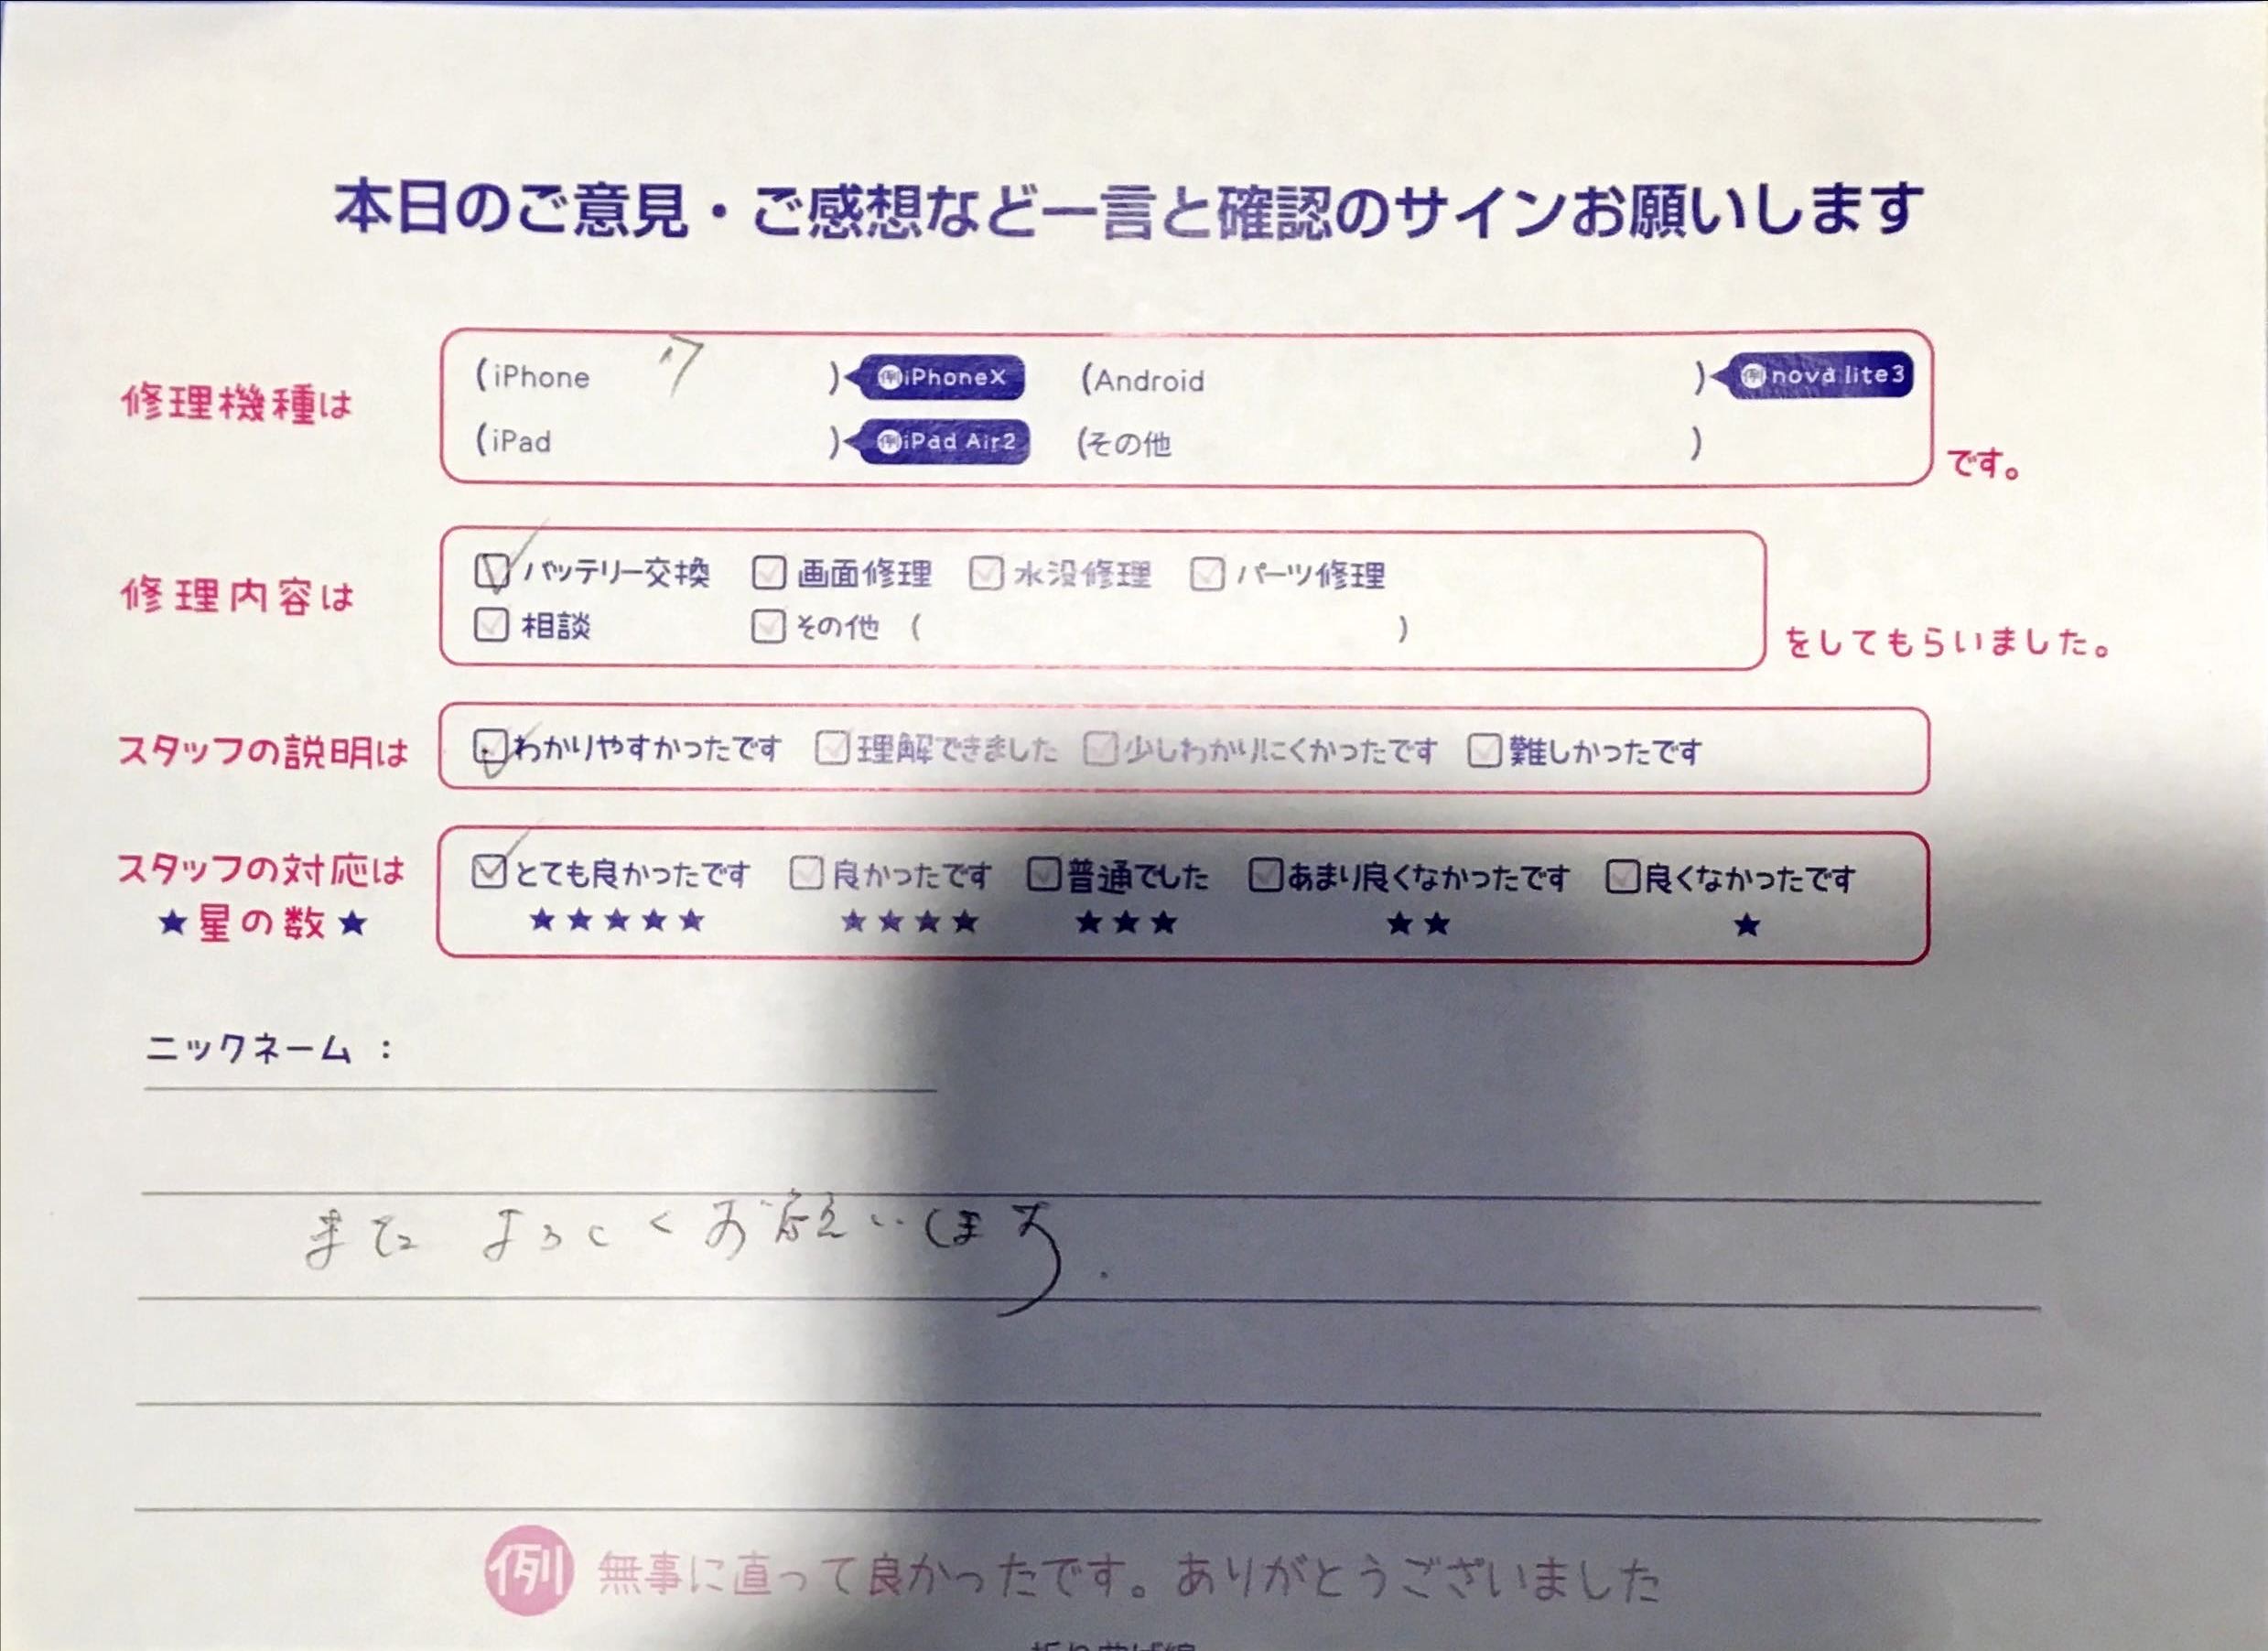 本日のご意見・ご感想など一言と確認のサインお願いします
修理機種は
(iPhone 7 ) 例iPhoneX (Android ) 例nova lite3
(iPad ) 例iPad Air2 (その他 )
です。
修理内容は
バッテリー交換 画面修理 水没修理 パーツ修理
相談 その他 ( )
をしてもらいました。
スタッフの説明は
わかりやすかったです 理解できました 少しわかりにくかったです 難しかったです
スタッフの対応は
★星の数★
とても良かったです 良かったです 普通でした あまり良くなかったです 良くなかったです
★★★★★ ★★★★ ★★★ ★★ ★
ニックネーム :
また よろしくお願いします.
例 無事に直って良かったです。ありがとうございました